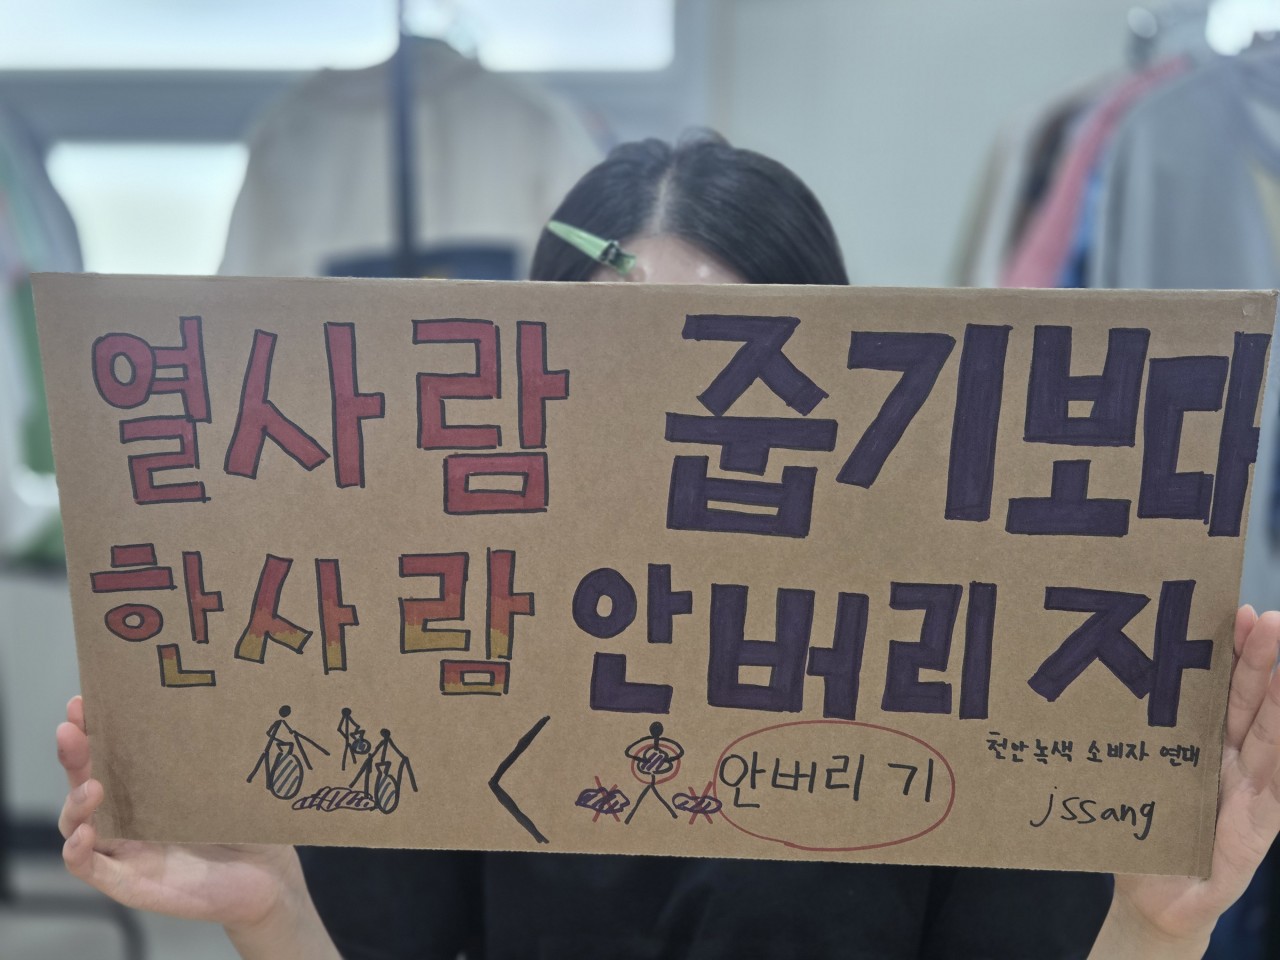 열사람 줍기보다
한사람 안버리자
<
안버리기
천안녹색 소비자 연대
jssang